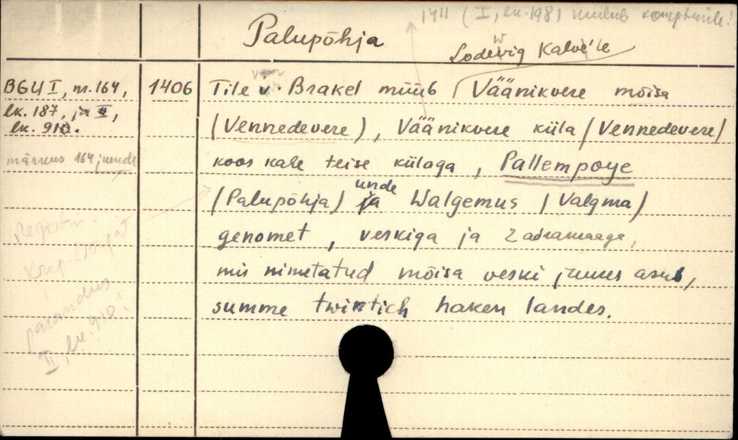 1411 (I, lk. 198)
Palupõhja
Lodewig Kalve'le
BGU I, nr. 164,
lk. 187, ja II,
lk. 910.
märkus 164 juurde
1406
Tile v. Brakel müüb Väänikvere mõisa
(Vennedevere), Väänikvere küla (Vennedevere)
koos kahe teise külaga, Pallempoye
(Palupõhja) unde ja Walgemus (Valgma)
genomet, veskiga ja 2 adramaaga,
mis nimetatud mõisa veski juures asub,
summe twintich haken landes.
parandus
II, lk. 910!